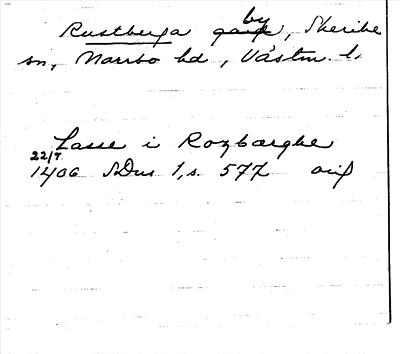 Rustberga by, Skerike
sn, Norrbo hd, Västm. l.
Lasse i Rozbærghe
22/7
1406 SDns 1, s. 577 orig